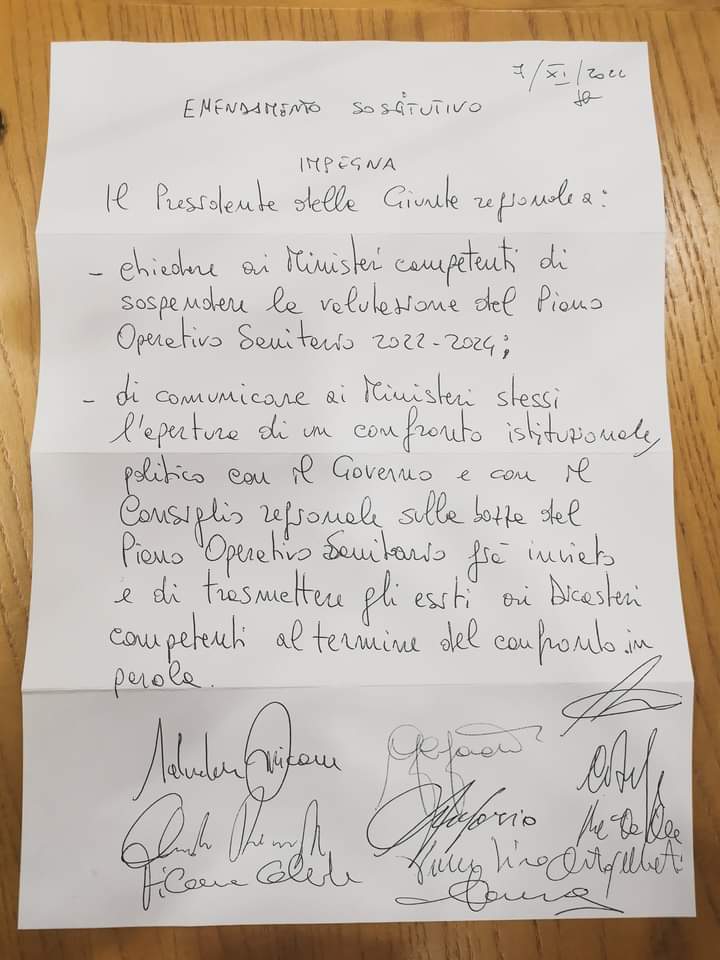 7/XI/2022
EMENDAMENTO SOSTITUTIVO
IMPEGNA
Il Presidente della Giunta regionale a:
- chiedere ai Ministeri competenti di
sospendere la valutazione del Piano
Operativo Sanitario 2022-2024;
- di comunicare ai Ministeri stessi
l'apertura di un confronto istituzionale,
politico con il Governo e con il
Consiglio regionale sulla bozza del
Piano Operativo Sanitario già inviato
e di trasmettere gli esiti ai Dicasteri
competenti al termine del confronto in
parola.